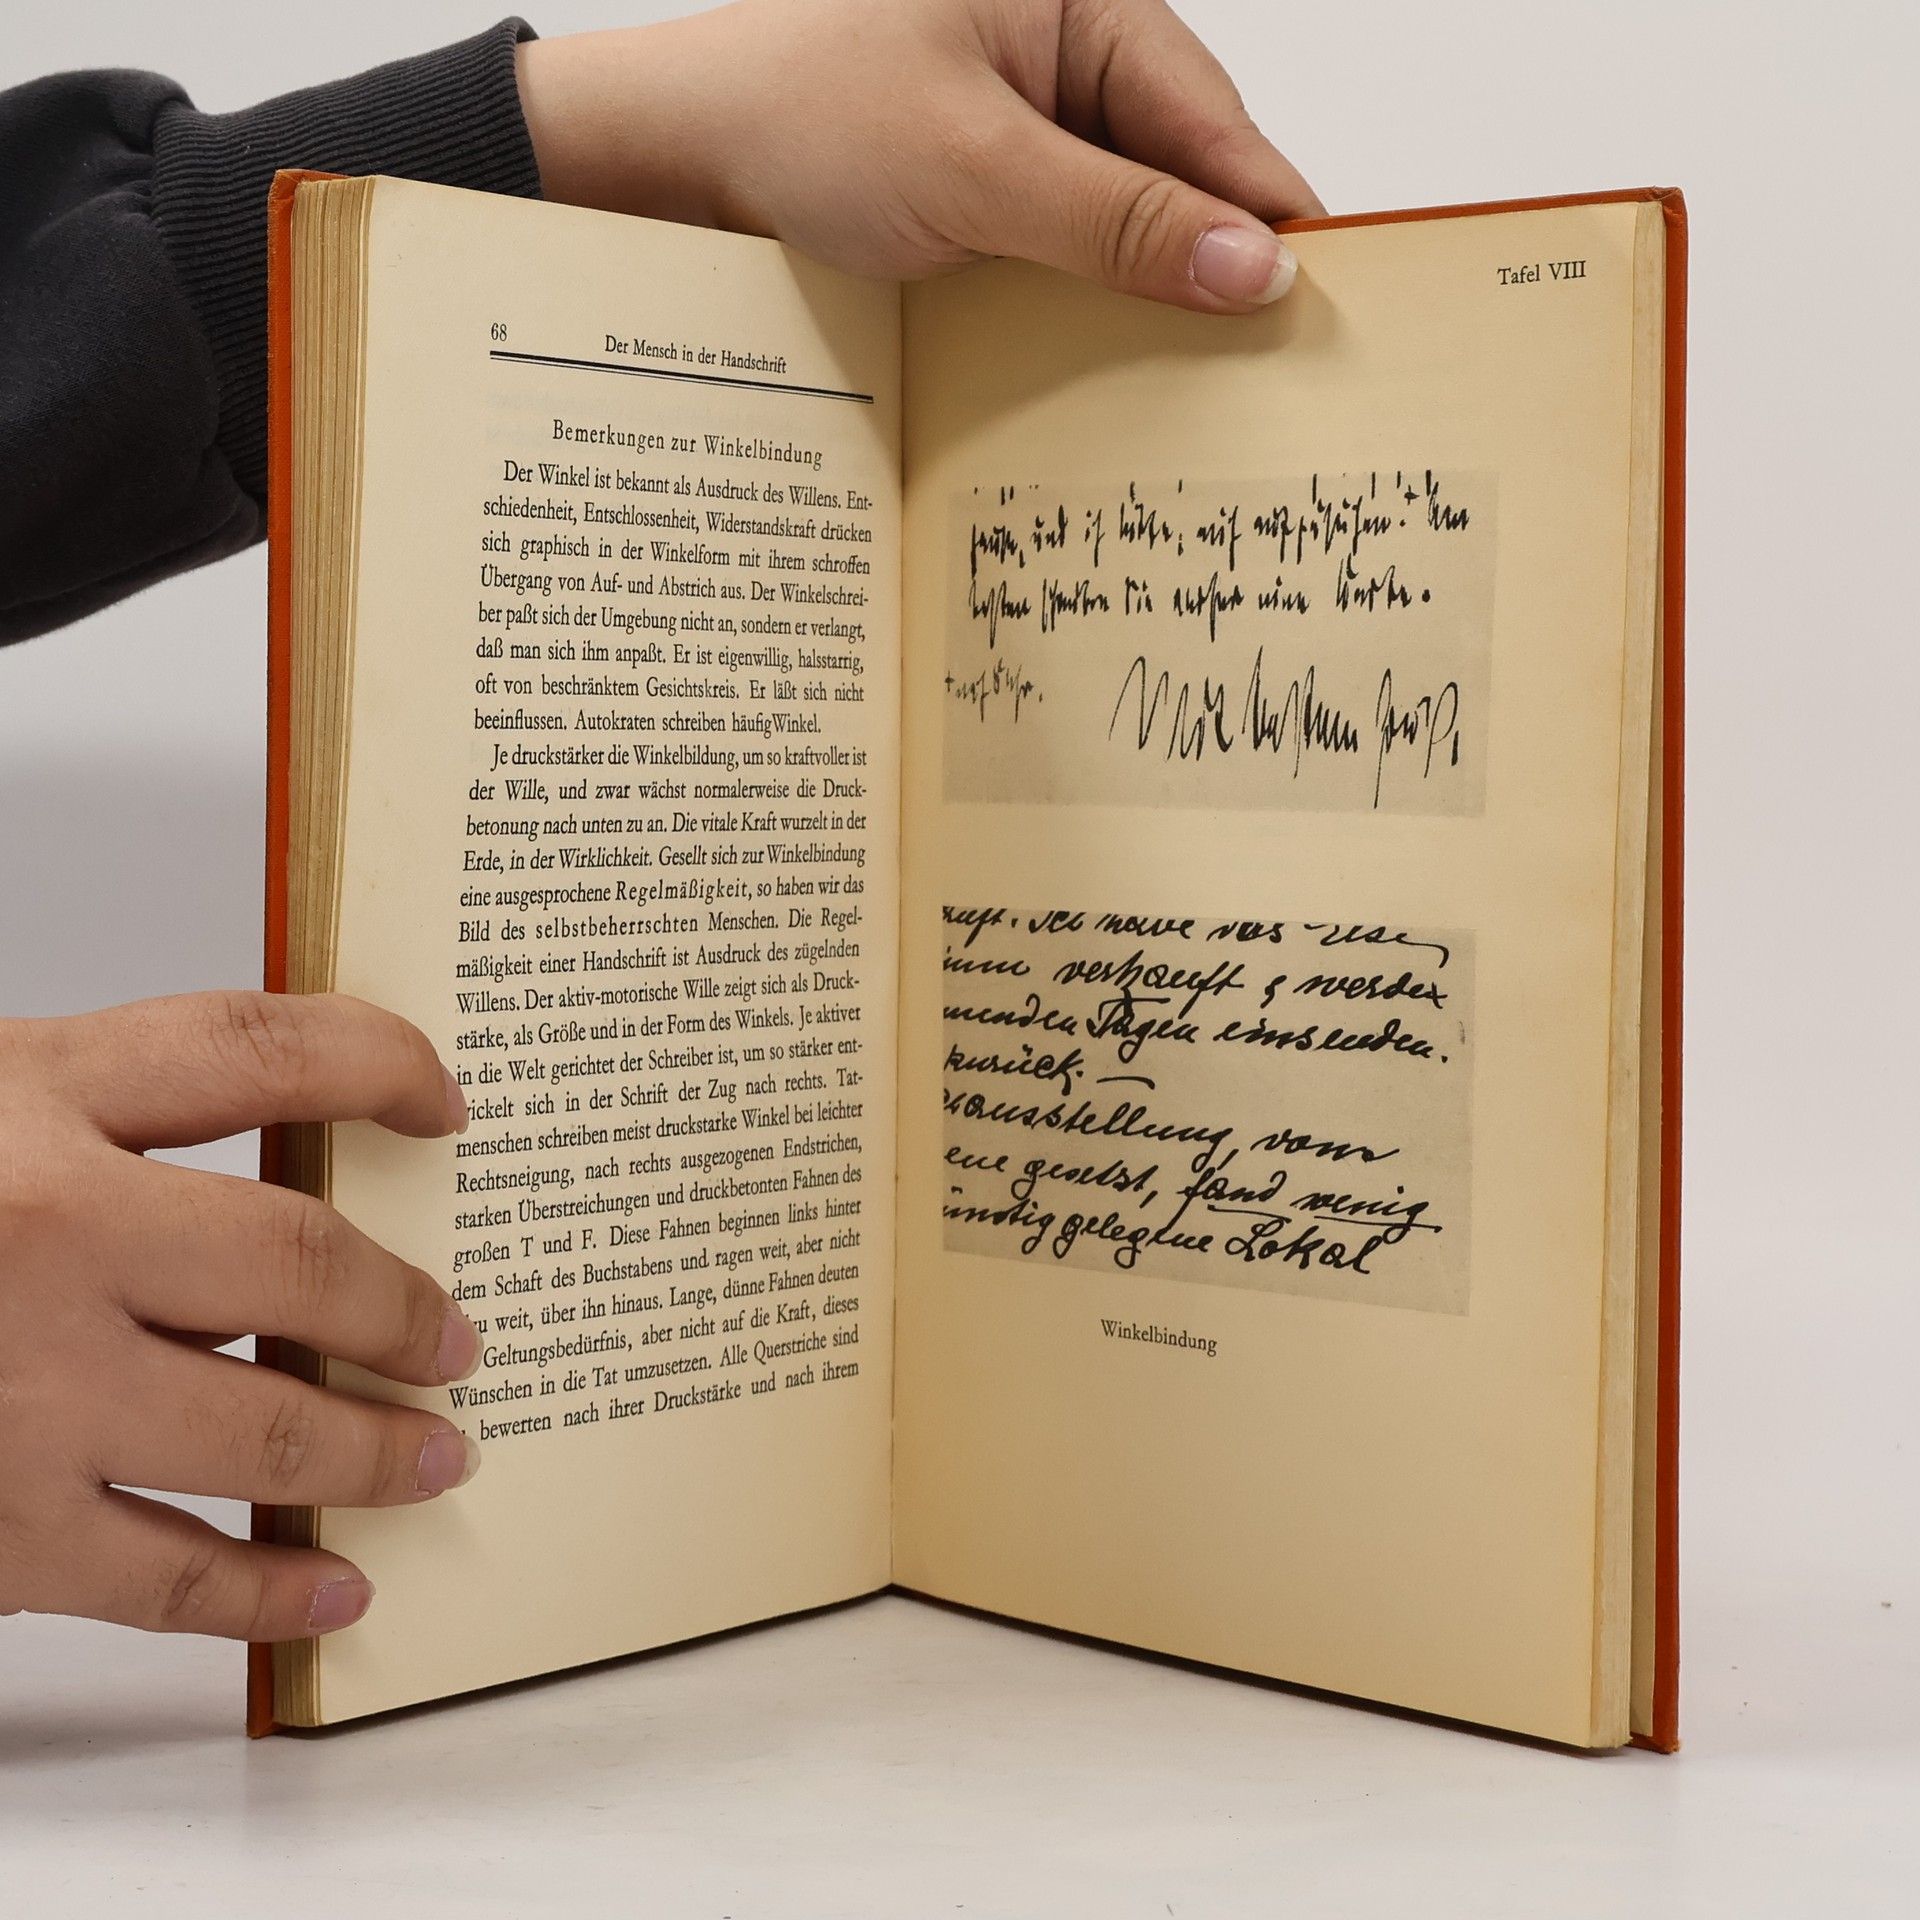 68
Der Mensch in der Handschrift
Bemerkungen zur Winkelbindung
Der Winkel ist bekannt als Ausdruck des Willens. Ent-
schiedenheit, Entschlossenheit, Widerstandskraft drücken
sich graphisch in der Winkelform mit ihrem schroffen
Übergang von Auf- und Abstrich aus. Der Winkelschrei-
ber paßt sich der Umgebung nicht an, sondern er verlangt,
daß man sich ihm anpaßt. Er ist eigenwillig, halsstarrig,
oft von beschränktem Gesichtskreis. Er läßt sich nicht
beeinflussen. Autokraten schreiben häufig Winkel.
Je druckstärker die Winkelbildung, um so kraftvoller ist
der Wille, und zwar wächst normalerweise die Druck-
betonung nach unten zu an. Die vitale Kraft wurzelt in der
Erde, in der Wirklichkeit. Gesellt sich zur Winkelbindung
eine ausgesprochene Regelmäßigkeit, so haben wir das
Bild des selbstbeherrschten Menschen. Die Regel-
mäßigkeit einer Handschrift ist Ausdruck des zügelnden
Willens. Der aktiv-motorische Wille zeigt sich als Druck-
stärke, als Größe und in der Form des Winkels. Je aktiver
in die Welt gerichtet der Schreiber ist, um so stärker ent-
wickelt sich in der Schrift der Zug nach rechts. Tat-
menschen schreiben meist druckstarke Winkel bei leichter
Rechtsneigung, nach rechts ausgezogenen Endstrichen,
starken Überstreichungen und druckbetonten Fahnen des
großen T und F. Diese Fahnen beginnen links hinter
dem Schaft des Buchstabens und ragen weit, aber nicht
weit, über ihn hinaus. Lange, dünne Fahnen deuten
Geltungsbedürfnis, aber nicht auf die Kraft, dieses
Wünschen in die Tat umzusetzen. Alle Querstriche sind
bewerten nach ihrer Druckstärke und nach ihrem
Tafel VIII
und ich bitte, mich aufzusuchen. Am
besten schreiben Sie vorher eine Karte.
Mit bestem Gruß,
Ich habe das
verkauft & werde
Tagen einsenden.
zurück.
ausstellung, vom
gesetzt, fand wenig
günstig gelegene Lokal
Winkelbindung